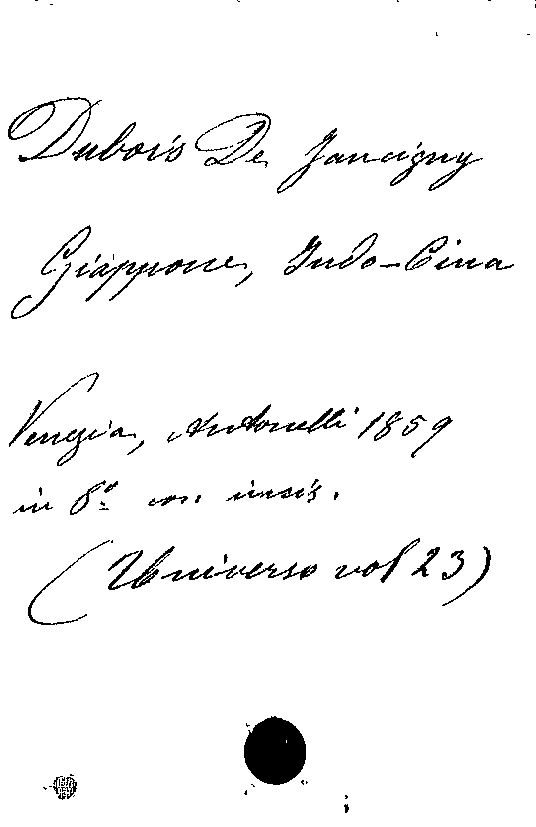 Dubois De Jancigny
Giappone, Indo-Cina
Venezia, Antonelli 1859
in 8º con incis.
(Universo vol 23)